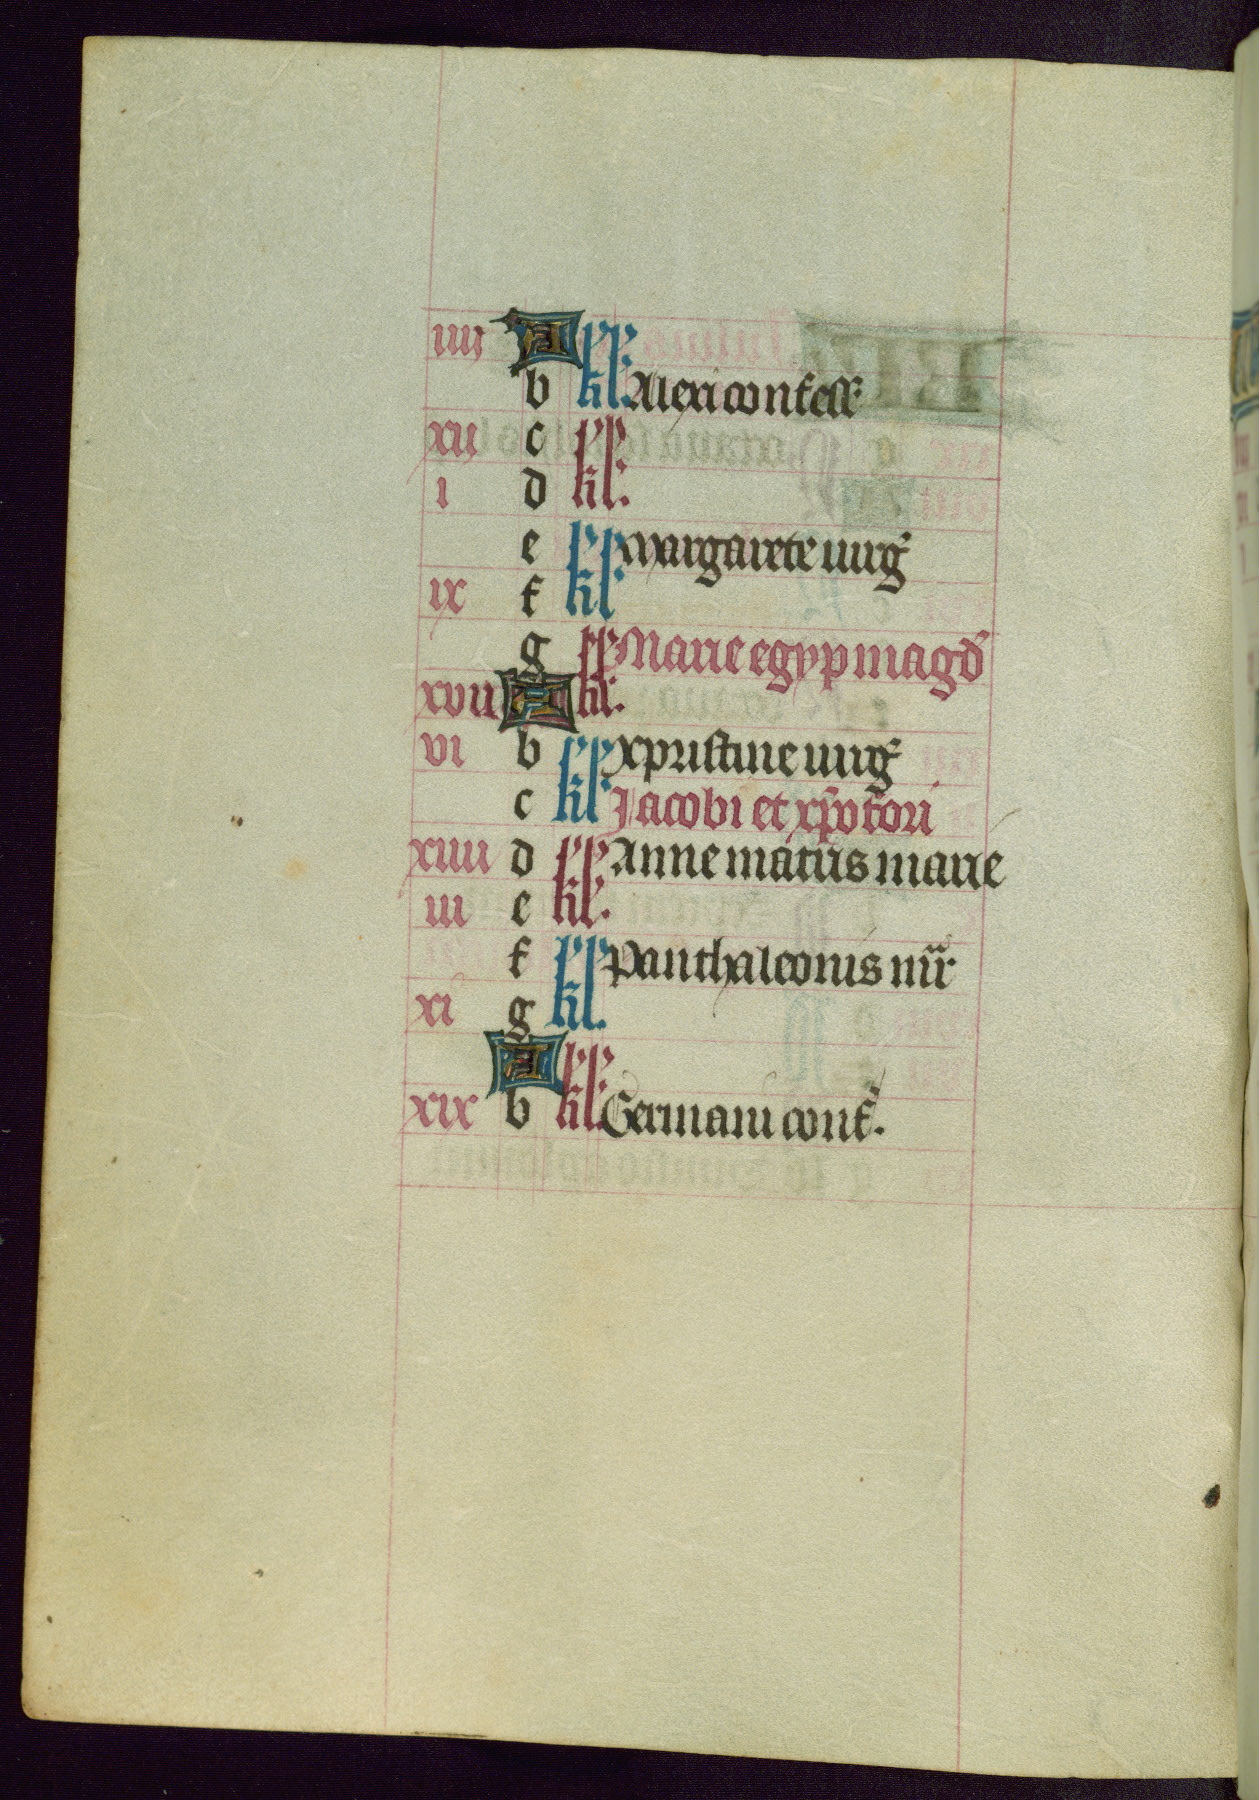 iiii A
b kl Alexi confess
xii c
i d kl.
e margarete uirg
ix f kl
g Marie egyp magd
xvii A kl.
vi b xpristine uirg
c kl Jacobi et xpofori
xiiii d Anne matris marie
iii e kl.
f panthaleonis mr
xi g kl.
A
xix b kl Germani conf.